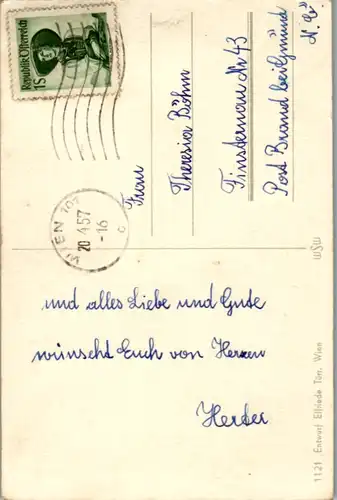 Republik Österreich
1S
WIEN 101
20.4.57
-16
c
Frau
Theresia Böhm
Finsternau Nr 43
Post Brand bei Gmünd
N.Ö
und alles Liebe und Gute
wünscht Euch von Herzen
WSW
1121 Entwurf Elfriede Türr, Wien